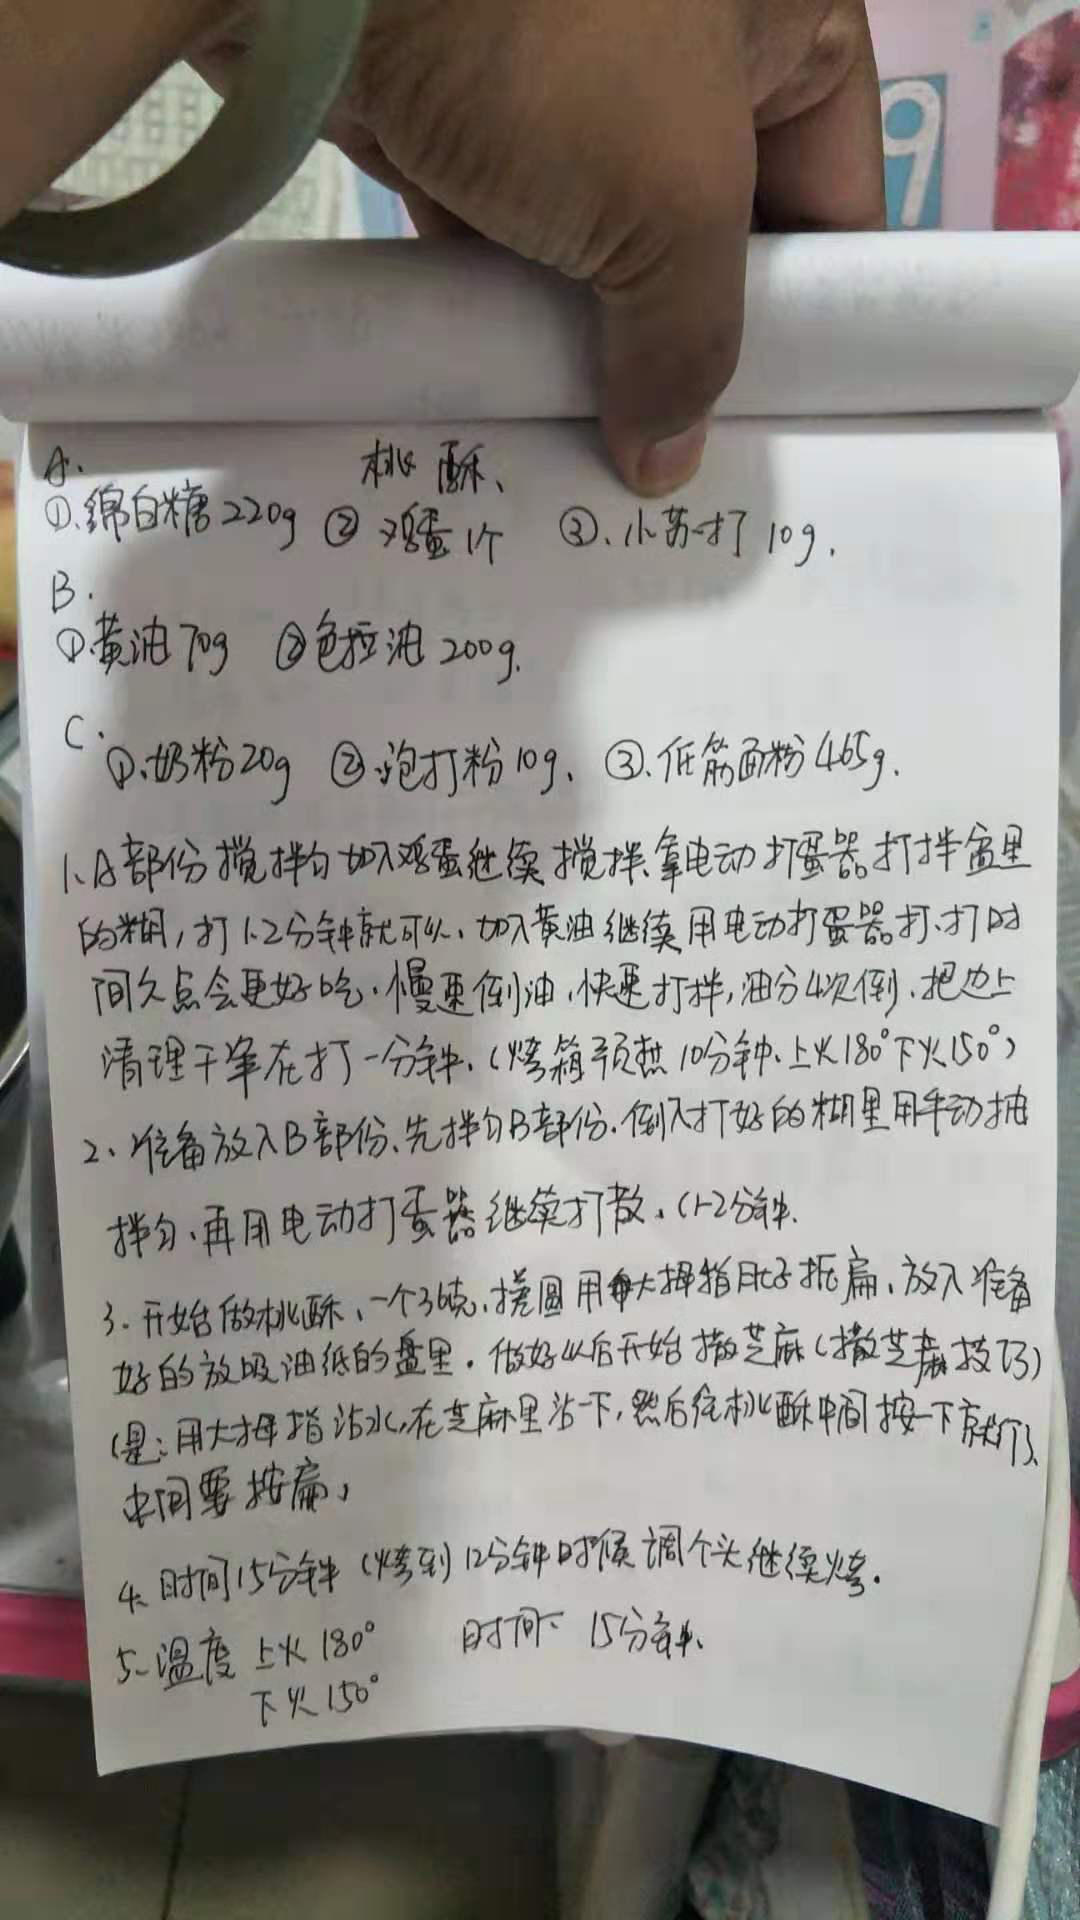 9
A. 桃酥、
①、绵白糖220g ② 鸡蛋1个 ③、小苏打 10g.
B.
①黄油70g ②色拉油 200g.
C.
①、奶粉20g ②、泡打粉10g、 ③、低筋面粉465g.
1、A部份搅拌匀加入鸡蛋继续搅拌、拿电动打蛋器打拌盆里
的糊,打1-2分钟就可以、加入黄油继续用电动打蛋器打、打时
间久点会更好吃.慢速倒油,快速打拌,油分4次倒、把边上
清理干净在打一分钟.(烤箱预热10分钟、上火180°下火150°)
2、准备放入B部份、先拌匀B部份.倒入打好的糊里用手动抽
拌匀、再用电动打蛋器继续打散.(1-2分钟.
3.开始做桃酥、一个36克,搓圆用大拇指肚子抵扁、放入准备
好的放吸油纸的盘里.做好以后开始撒芝麻(撒芝麻技巧)
(是:用大拇指沾水,在芝麻里沾一下,然后往桃酥中间按一下就行、
中间要按扁,
4、时间15分钟(烤到12分钟时候调个头继续烤.
5、温度 上火180° 时间: 15分钟、
下火150°